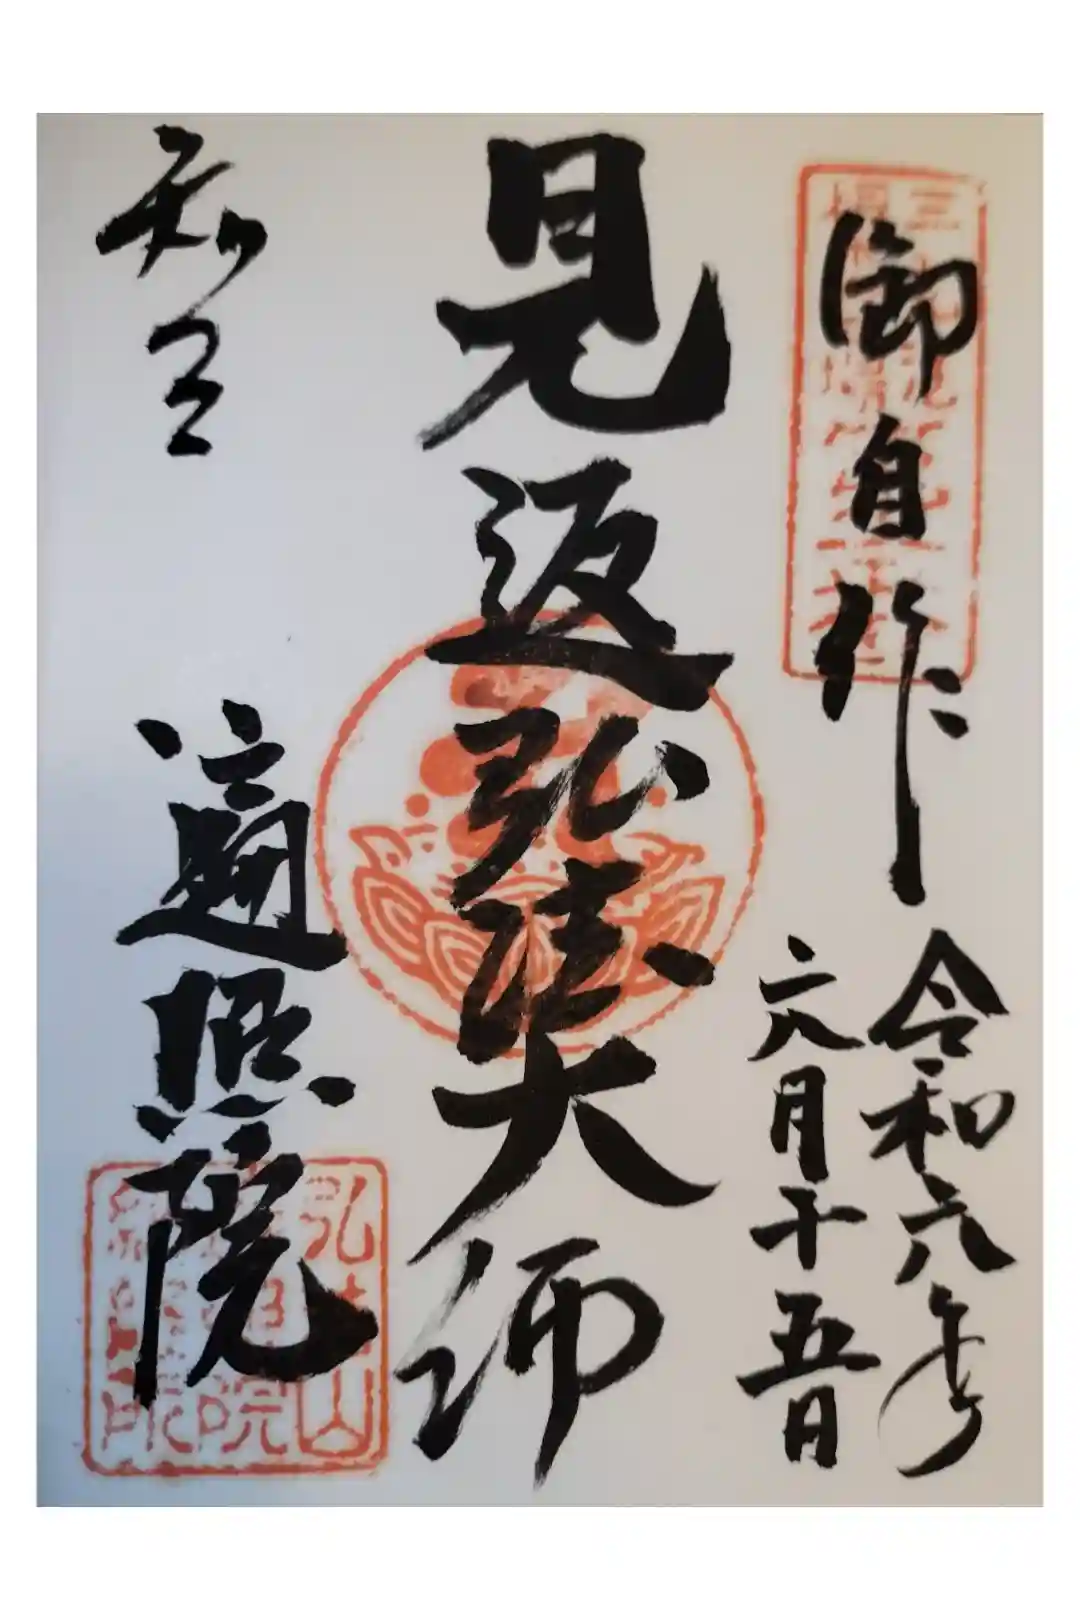 御自作
令和六年
六月十五日
見返弘法大師
知立
遍照院
弘法山
遍照院